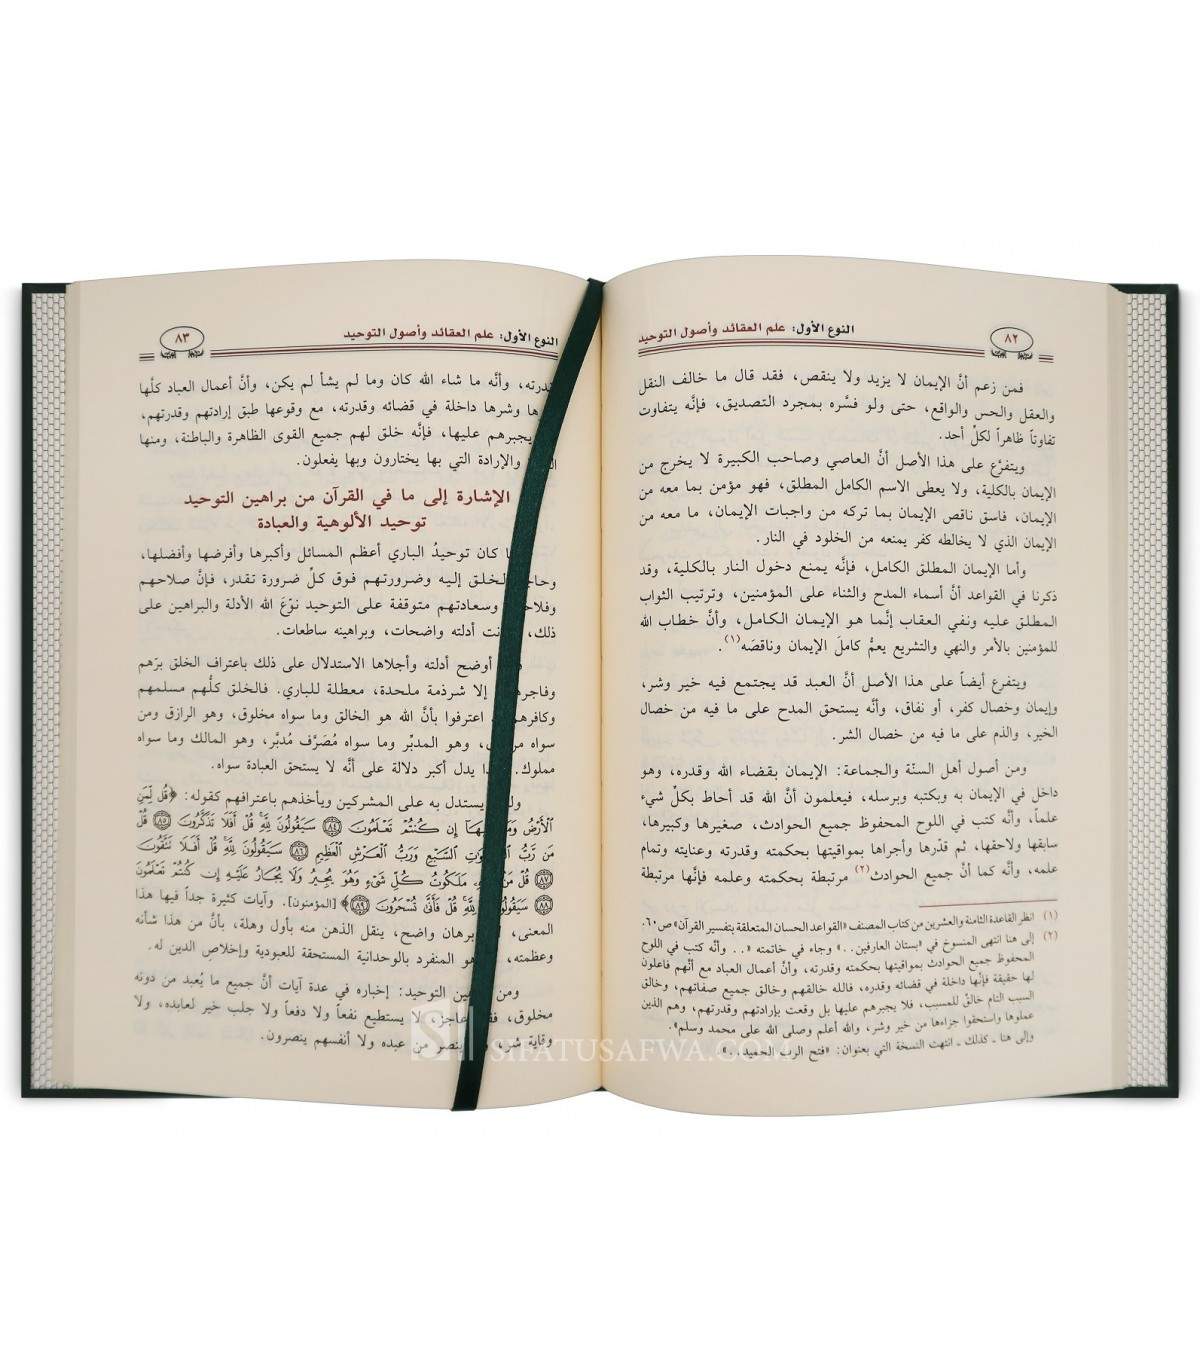 النوع الأول: علم العقائد وأصول التوحيد
٨٢
فمن زعم أنَّ الإيمان لا يزيد ولا ينقص، فقد قال ما خالف النقل
والعقل والحس والواقع، حتى ولو فسَّره بمجرد التصديق، فإنَّه يتفاوت
تفاوتاً ظاهراً لكلِّ أحد.
ويتفرَّع على هذا الأصل أنَّ العاصي وصاحب الكبيرة لا يخرج من
الإيمان بالكلية، ولا يعطى الاسم الكامل المطلق، فهو مؤمن بما معه من
الإيمان، فاسق ناقص الإيمان بما تركه من واجبات الإيمان، ما معه من
الإيمان الذي لا يخالطه كفر يمنعه من الخلود في النار.
وأما الإيمان المطلق الكامل، فإنَّه يمنع دخول النار بالكلية، وقد
ذكرنا في القواعد أنَّ أسماء المدح والثناء على المؤمنين، وترتيب الثواب
المطلق عليه ونفي العقاب إنَّما هو الإيمان الكامل، وأنَّ خطاب الله
للمؤمنين بالأمر والنهي والتشريع يعمُّ كاملَ الإيمان وناقصَه(١).
ويتفرع أيضاً على هذا الأصل أنَّ العبد قد يجتمع فيه خير وشر،
وإيمان وخصال كفر، أو نفاق، وأنَّه يستحق المدح على ما فيه من خصال
الخير، والذم على ما فيه من خصال الشر.
ومن أصول أهل السنّة والجماعة: الإيمان بقضاء الله وقدره، وهو
داخل في الإيمان به وبكتبه وبرسله، فيعلمون أنَّ الله قد أحاط بكلِّ شيء
علماً، وأنَّه كتب في اللوح المحفوظ جميع الحوادث، صغيرها وكبيرها،
سابقها ولاحقها، ثم قدَّرها وأجراها بمواقيتها بحكمته وقدرته وعنايته وتمام
علمه، وأنَّه كما أنَّ جميع الحوادث(٢) مرتبطة بحكمته وعلمه فإنَّها مرتبطة
(١) انظر القاعدة الثامنة والعشرين من كتاب المصنف «القواعد الحسان المتعلقة بتفسير القرآن» ص٦٠.
(٢) إلى هنا انتهى المنسوخ في «بستان العارفين..» وجاء في خاتمته «.. وأنَّه كتب في اللوح
المحفوظ جميع الحوادث بمواقيتها بحكمته وقدرته، وأنَّ أعمال العباد مع أنَّهم فاعلون
لها حقيقة فإنَّها داخلة في قضائه وقدره، فالله خالقهم وخالق جميع صفاتهم، وخالق
السبب التام خالقٌ للمسبب، فلا يجبرهم عليها بل وقعت بإرادتهم وقدرتهم، وهم الذين
عملوها واستحقوا جزاءها من خير وشر، والله أعلم وصلى الله على محمد وسلم».
وإلى هنا ـ كذلك ـ انتهت النسخة التي بعنوان: «فتح الرب الحميد..».
النوع الأول: علم العقائد وأصول التوحيد
٨٣
بقدرته، وأنَّه ما شاء الله كان وما لم يشأ لم يكن، وأنَّ أعمال العباد كلَّها
وشرها داخلة في قضائه وقدرته، مع وقوعها طبق إرادتهم وقدرتهم،
يجبرهم عليها، فإنَّه خلق لهم جميع القوى الظاهرة والباطنة، ومنها
والإرادة التي بها يختارون وبها يفعلون.
الإشارة إلى ما في القرآن من براهين التوحيد
توحيد الألوهية والعبادة
كان توحيدُ الباري أعظم المسائل وأكبرها وأفرضها وأفضلها،
الخلق إليه وضرورتهم فوق كلِّ ضرورة تقدر، فإنَّ صلاحهم
وسعادتهم متوقفة على التوحيد نوَّعَ الله الأدلة والبراهين على
ذلك، أدلته واضحات، وبراهينه ساطعات.
أوضح أدلته وأجلاها الاستدلال على ذلك باعتراف الخلق برّهم
إلا شرذمة ملحدة، معطلة للباري. فالخلق كلُّهم مسلمهم
وكافرهم اعترفوا بأنَّ الله هو الخالق وما سواه مخلوق، وهو الرازق ومن
سواه وهو المدبِّر وما سواه مُصَرَّف مُدبَّر، وهو المالك وما سواه
مملوك. يدل أكبر دلالة على أنَّه لا يستحق العبادة سواه.
يستدل به على المشركين ويأخذهم باعترافهم كقوله: ﴿قُل لِّمَنِ
ٱلْأَرْضُ إِن كُنتُمْ تَعْلَمُونَ ۝٨٤ سَيَقُولُونَ لِلَّهِ قُلْ أَفَلَا تَذَكَّرُونَ ۝٨٥ قُلْ
مَن رَّبُّ ٱلسَّبْعِ وَرَبُّ ٱلْعَرْشِ ٱلْعَظِيمِ ۝٨٦ سَيَقُولُونَ لِلَّهِ قُلْ أَفَلَا تَتَّقُونَ
۝٨٧ قُلْ مَنْ مَلَكُوتُ كُلِّ شَيْءٍ وَهُوَ يُجِيرُ وَلَا يُجَارُ عَلَيْهِ إِن كُنتُمْ تَعْلَمُونَ
۝٨٨ سَيَقُولُونَ لِلَّهِ قُلْ فَأَنَّىٰ تُسْحَرُونَ ۝٨٩﴾ [المؤمنون]. وآيات كثيرة جداً فيها هذا
المعنى، برهان واضح، ينقل الذهن منه بأول وهلة، بأنَّ من هذا شأنه
وعظمته، هو المنفرد بالوحدانية المستحقة للعبودية وإخلاص الدين له.
ومن التوحيد: إخباره في عدة آيات أنَّ جميع ما يُعبد من دونه
مخلوق، عاجز، لا يستطيع نفعاً ولا دفعاً ولا جلب خير لعابده، ولا
وقاية شر، ينصر من عبده ولا أنفسهم ينصرون.
SIFATUSAFWA.COM